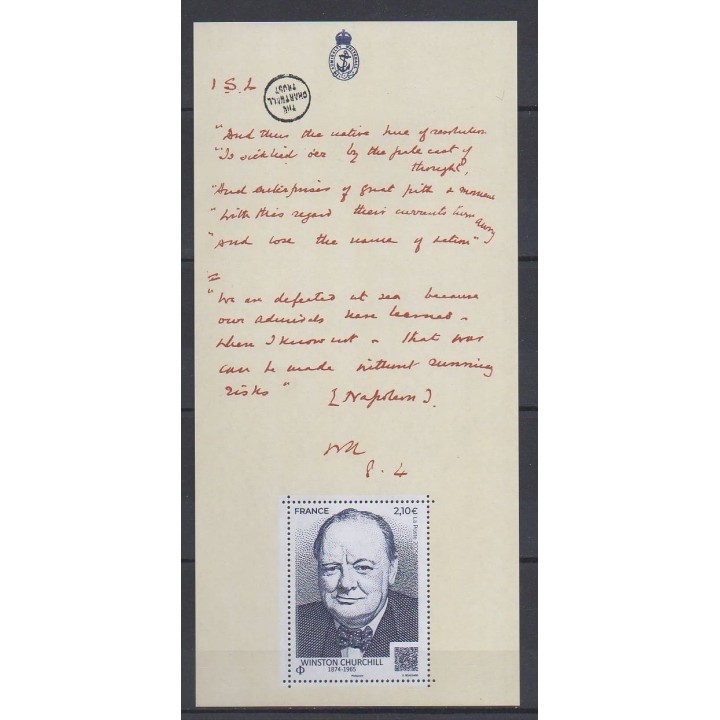 ADMIRALTY WHITEHALL
1 S.L
THE
CHARTWELL
TRUST
"And thus the native hue of resolution
"Is sicklied o'er by the pale cast of
thought,
"And enterprises of great pith & moment
"With this regard their currents turn away
"And lose the name of Action"
=
"We are defeated at sea because
our Admirals have learned -
where I know not - that war
can be made without running
risks"
[Napoleon].
8.4
FRANCE 2,10€
La Poste
WINSTON CHURCHILL
1874-1965